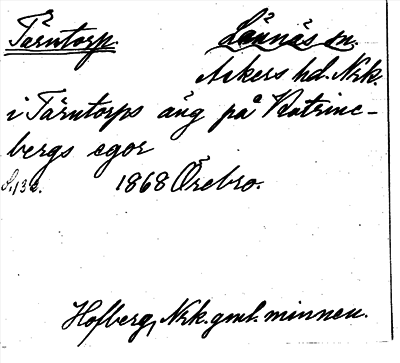 Tärntorp. Lännäs sn.
Askers hd. Nrk.
i Tärntorps äng på Katrine-
bergs egor
S. 132. 1868 Örebro.
Hofberg, Nrk. gml. minnen.